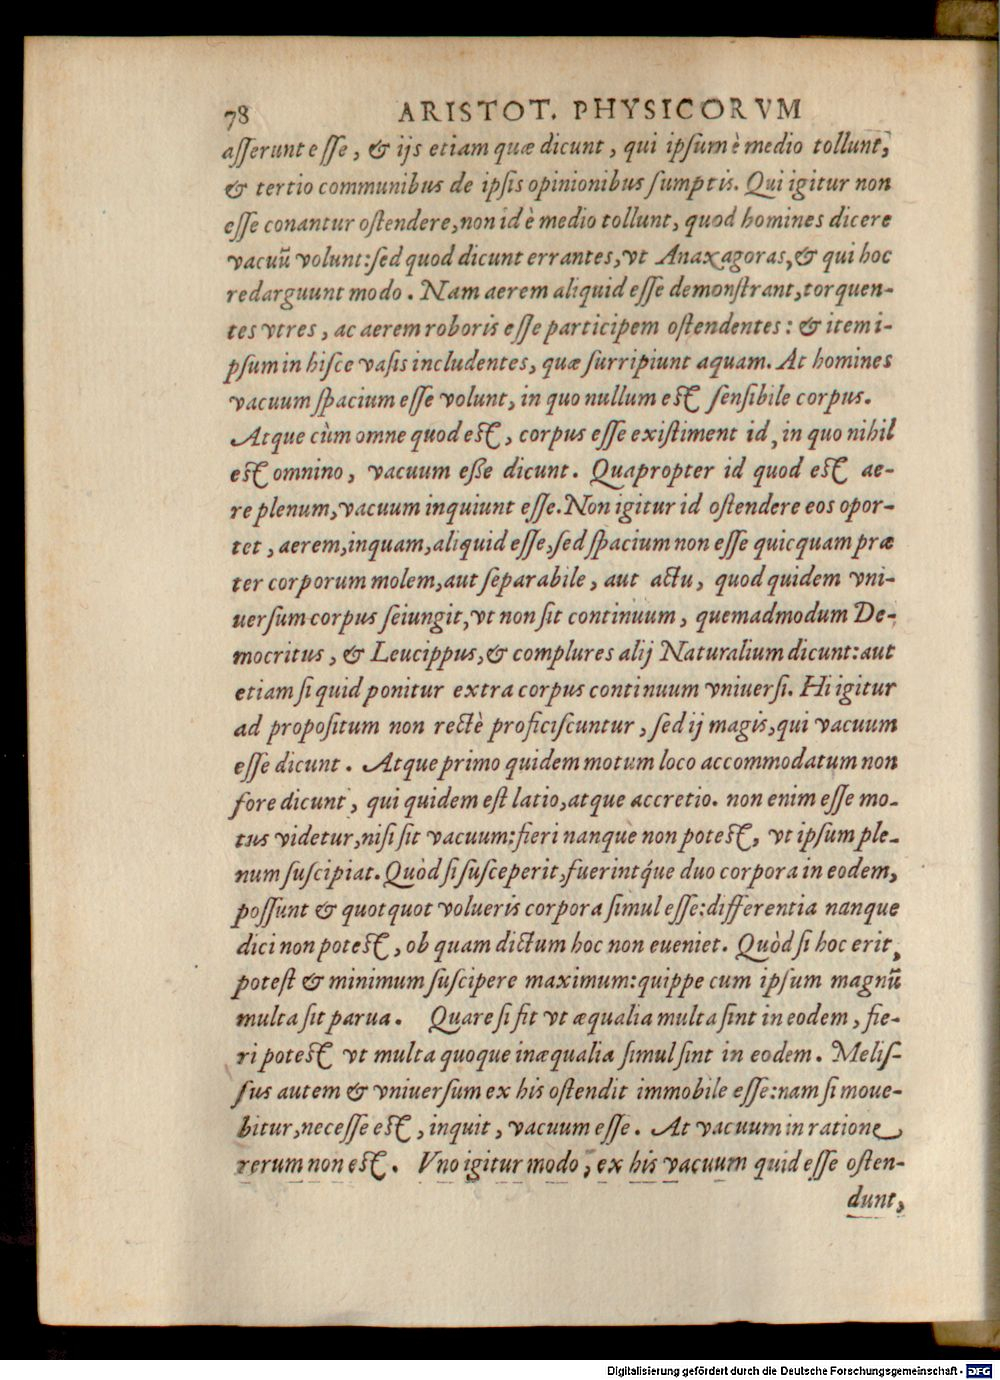 78 ARISTOT. PHYSICORVM
aſſerunt eſſe, & ijs etiam quæ dicunt, qui ipſum è medio tollunt,
& tertio communibus de ipſis opinionibus ſumptis. Qui igitur non
eſſe conantur oſtendere, non id è medio tollunt, quod homines dicere
vacuū volunt: ſed quod dicunt errantes, vt Anaxagoras, & qui hoc
redarguunt modo. Nam aerem aliquid eſſe demonſtrant, torquen-
tes vtres, ac aerem roboris eſſe participem oſtendentes: & item i-
pſum in hiſce vaſis includentes, quæ ſurripiunt aquam. At homines
vacuum ſpacium eſſe volunt, in quo nullum eſt ſenſibile corpus.
Atque cùm omne quod eſt, corpus eſſe exiſtiment id, in quo nihil
eſt omnino, vacuum eße dicunt. Quapropter id quod eſt ae-
re plenum, vacuum inquiunt eſſe. Non igitur id oſtendere eos opor-
tet, aerem, inquam, aliquid eſſe, ſed ſpacium non eſſe quicquam præ
ter corporum molem, aut ſeparabile, aut actu, quod quidem vni-
uerſum corpus ſeiungit, vt non ſit continuum, quemadmodum De-
mocritus, & Leucippus, & complures alij Naturalium dicunt: aut
etiam ſi quid ponitur extra corpus continuum vniuerſi. Hi igitur
ad propoſitum non rectè proficiſcuntur, ſed ij magis, qui vacuum
eſſe dicunt. Atque primo quidem motum loco accommodatum non
fore dicunt, qui quidem eſt latio, atque accretio. non enim eſſe mo-
tus videtur, niſi ſit vacuum: fieri nanque non poteſt, vt ipſum ple-
num ſuſcipiat. Quòd ſi ſuſceperit, fuerintq́ue duo corpora in eodem,
poſſunt & quotquot volueris corpora ſimul eſſe: differentia nanque
dici non poteſt, ob quam dictum hoc non eueniet. Quòd ſi hoc erit,
poteſt & minimum ſuſcipere maximum: quippe cum ipſum magnū
multa ſit parua. Quare ſi fit vt æqualia multa ſint in eodem, fie-
ri poteſt vt multa quoque inæqualia ſimul ſint in eodem. Meliſ-
ſus autem & vniuerſum ex his oſtendit immobile eſſe: nam ſi moue-
bitur, neceſſe eſt, inquit, vacuum eſſe. At vacuum in ratione
rerum non eſt. Vno igitur modo, ex his vacuum quid eſſe oſten-
dunt,
Digitalisierung gefördert durch die Deutsche Forschungsgemeinschaft - DFG